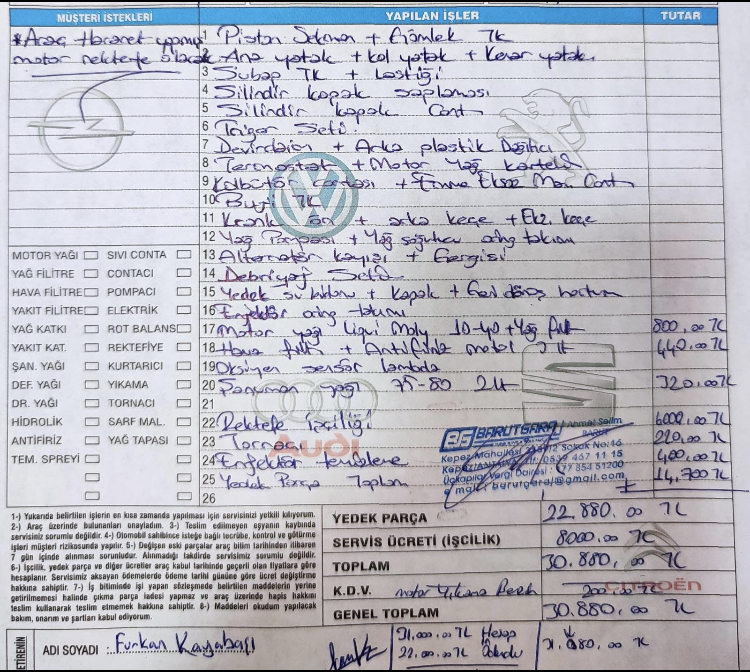 MÜŞTERİ İSTEKLERİ
YAPILAN İŞLER
TUTAR
*Araç Hararet yapmış
motor rektefe olacak
Piston Sekman + Gömlek TK
2 Ana yatak + kol yatak + Kenar yatak
3 Subap TK + Lastiği
4 Silindir kapak saplaması
5 Silindir kapak Cont
6 Triger Seti
7 Devirdaim + Arka plastik Dağıtıcı
8 Termostat + Motor Yağ
9 Külbütör contası + Emme Eksoz Man. Cont
10 Buji TK
11 Krank ön + arka keçe + Ekz. keçe
12 Yağ Pompası + Yağ soğutucu oring takımı
13 Alternatör kayışı + Gergisi
14 Debriyaj Seti
15 Yedek su bidonu + Kapak + Geri dönüş hortum
16 Enjektör oring takımı
17 Motor yağı Liqui Moly 10-40 + Yağ filt 800.00 TL
18 Hava filt + Antifiriz 440.00 TL
19 Oksijen sensör lambda
20 Şanzuman yağı 75-80 2Lt 320.00 TL
21
22 Rektefe İşçiliği 6000.00 TL
23 Tornacı
24 Enjektör temizleme 400.00 TL
25 Yedek Parça Toplam 14.700 TL
26
MOTOR YAĞI SIVI CONTA
YAĞ FİLİTRE CONTACI
HAVA FİLİTRE POMPACI
YAKIT FİLİTRE ELEKTRİK
YAĞ KATKI ROT BALANS
YAKIT KAT. REKTEFİYE
ŞAN. YAĞI KURTARICI
DEF. YAĞI YIKAMA
DR. YAĞI TORNACI
HİDROLİK SARF MAL.
ANTİFİRİZ YAĞ TAPASI
TEM. SPREYİ
Audi
CITROËN
BG BARUTGARAJ Ahmet Selim
BARUT
Kepez Mahallesi Sokak No:46
Kepez/ANTALYA 0539 467 11 15
Üçkapılar Vergi Dairesi : 177 854 51200
e mail : barutgaraj@gmail.com
1-) Yukarıda belirtilen işlerin en kısa zamanda yapılması için servisinizi yetkili kılıyorum.
2-) Araç üzerinde bulunanları onayladım. 3-) Teslim edilmeyen eşyanın kaybında
servisiniz sorumlu değildir. 4-) Otomobil sahibince isteğe bağlı tecrübe, kontrol ve götürme
işleri müşteri rizikosunda yapılır. 5-) Değişen eski parçalar araç bilim tarihinden itibaren
7 gün içinde alınması sorunludur. Alınmadığı takdirde servisimiz sorumlu değildir.
6-) İşcilik, yedek parça ve diğer ücretler araç kabul tarihinde geçerli olan fiyatlara göre
hesaplanır. Servisimiz aksayan ödemelerde ödeme tarihi gününe göre ücret değiştirme
hakkına sahiptir. 7-) İş bitiminde iş yapan sözleşmede belirtilen maddelerin yerine
getirememesi halinde çıkma parça iadesi yapmaz ve araç üzerinde hapis hakkını
teslim kullanarak teslim etmemek hakkına sahiptir. 8-) Maddeleri okudum yapılacak
bakım, onarım ve şartları kabul ediyorum.
YEDEK PARÇA 22.880.00 TL
SERVİS ÜCRETİ (İŞÇİLİK) 8000.00 TL
TOPLAM 30.880.00 TL
K.D.V. motor Yıkama 200.00 TL
GENEL TOPLAM 30.880.00 TL
ETİRENİN
ADI SOYADI : Furkan Kayabaşı
31.000.00 TL Hesap
22.000.00 TL Ödendi
31.080.00 TL